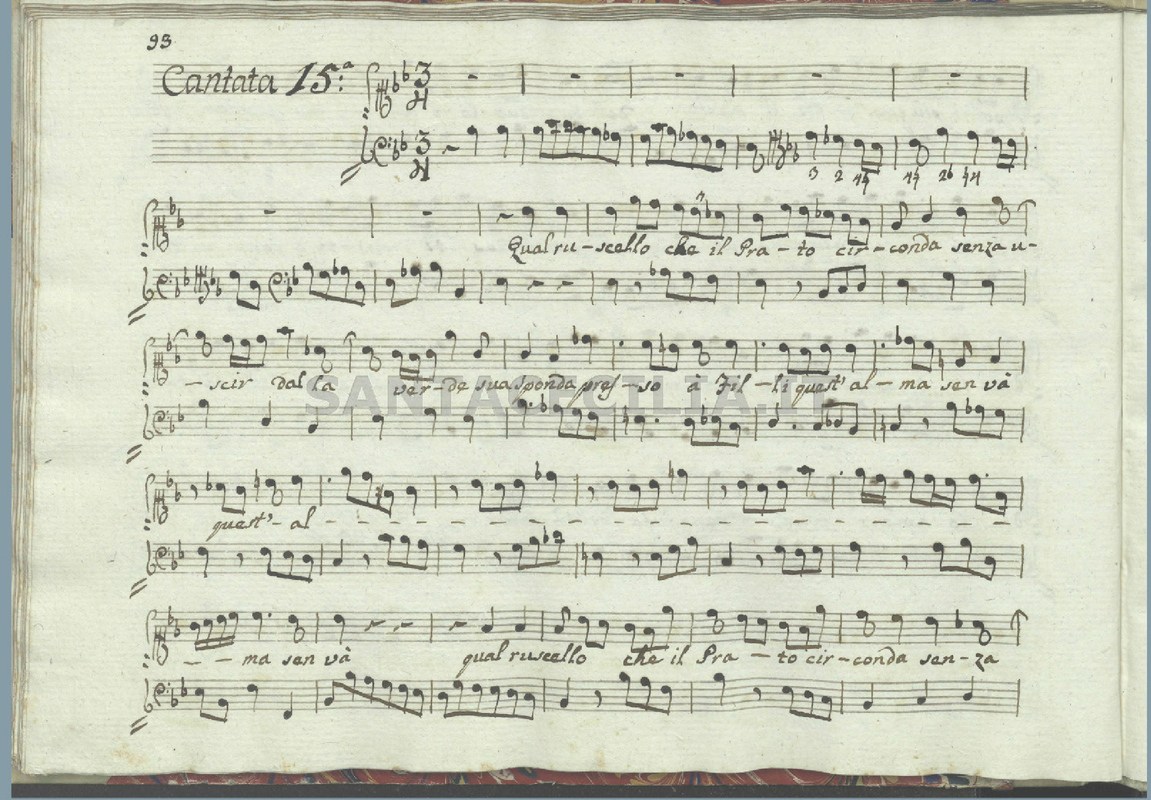 93
Cantata 15.ª
3 4
3 4
3 2 4
Qual ru-scello che il Pra-to cir-conda senza u-
-scir dal la ver-de sua sponda pres-so à Fil-li quest' al-ma sen và
SANTACECILIA.IT
quest'-al - - - - - - - - - - - -
- - ma sen và qual ruscello che il Pra-to cir-conda sen-za